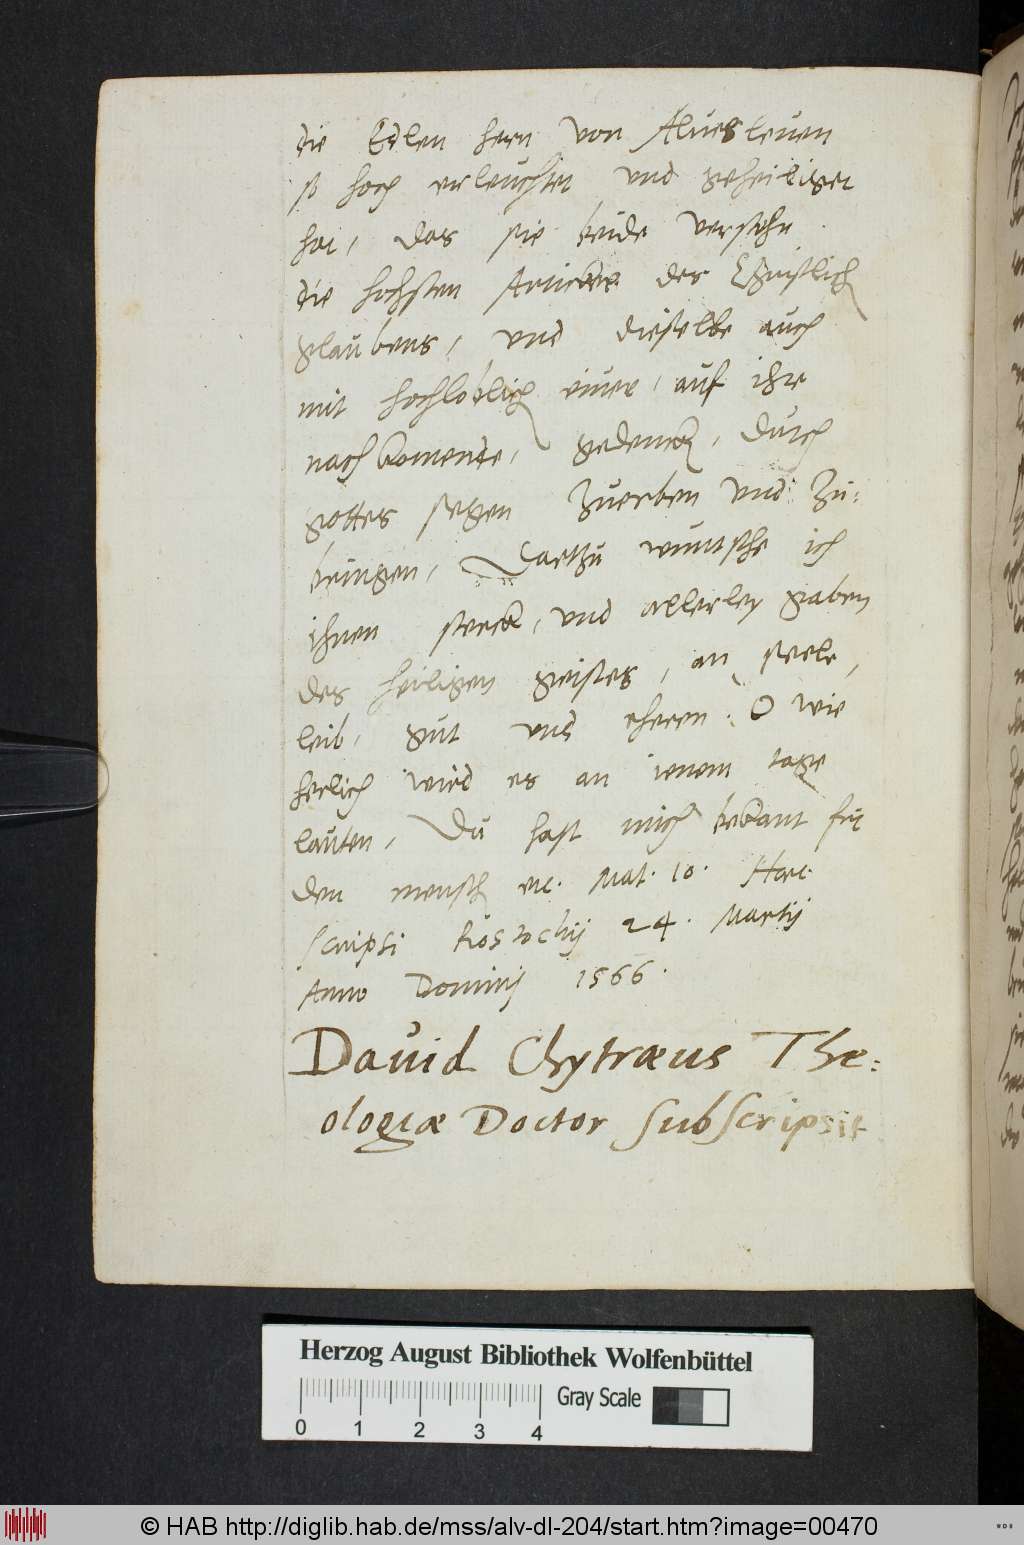 die Edlen hern von Aluesleuen
so hoch erleuchtet und geheiliget
hat, das sie beide verstehn
die hochsten Artickel der Christlich
glaubens, und dieselbe auch
mit hochloblich eiuer, auf ihre
nachkomende, gedenck, durch
gottes segen zuerben und zu-
bringen, Dartzu wuntsche ich
ihnen sterck, und allerley gaben
des heiligen geistes, an seele,
leib, gut und eheren. O wie
herlich wird es an ienem tage
lauten, Du hast mich bekant fur
den mensch etc. Mat. 10. Haec
scripsi Rostochij 24. Martij
Anno Dominj 1566.
Dauid Chytræus The:
ologiæ Doctor subscripsit
Herzog August Bibliothek Wolfenbüttel
0 1 2 3 4 Gray Scale
© HAB http://diglib.hab.de/mss/alv-dl-204/start.htm?image=00470